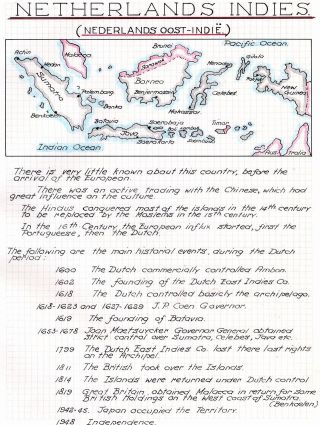 NETHERLANDS INDIES
(NEDERLANDS OOST-INDIË.)
Pacific Ocean
Achin
Malacca
Medan
Bruno
Sarawak
Borneo
Menado
Sumatra
Palembang
Banjermassin
Celebes
New Guinea
Banka
Benkoelen
Batavia
Soerabaja
Macassar
Java
Soerakarta
Timor
Australia
Indian Ocean
There is very little known about this country, before the
arrival of the European.
There was an active trading with the Chinese, which had
great influence on the culture.
The Hindus conquered most of the islands in the 14th century
to be replaced by the Moslems in the 15th century.
In the 16th Century the European influx started, first the
Portugueese, then the Dutch.
The following are the main historial events, during the Dutch
period:
1600 The Dutch commercially controlled Ambon.
1602 The founding of the Dutch East Indies Co.
1618 The Dutch controlled basicly the archipelago.
1618-1623 and 1627-1629 J.P. Coen Governor.
1619 The founding of Batavia.
1653-1678 Joan Maetsuycker Governor General obtained
strict control over Sumatra, Celebes, Java etc.
1799 The Dutch East Indies Co. lost there last rights
on the Archipel.
1811 The British took over the Islands.
1814 The Islands were returned under Dutch control
1819 Great Britain obtained Malacca in return for some
British Holdings on the West Coast of Sumatra.
(Benkoelen)
1942-45. Japan occupied the Territory.
1948 Independence.